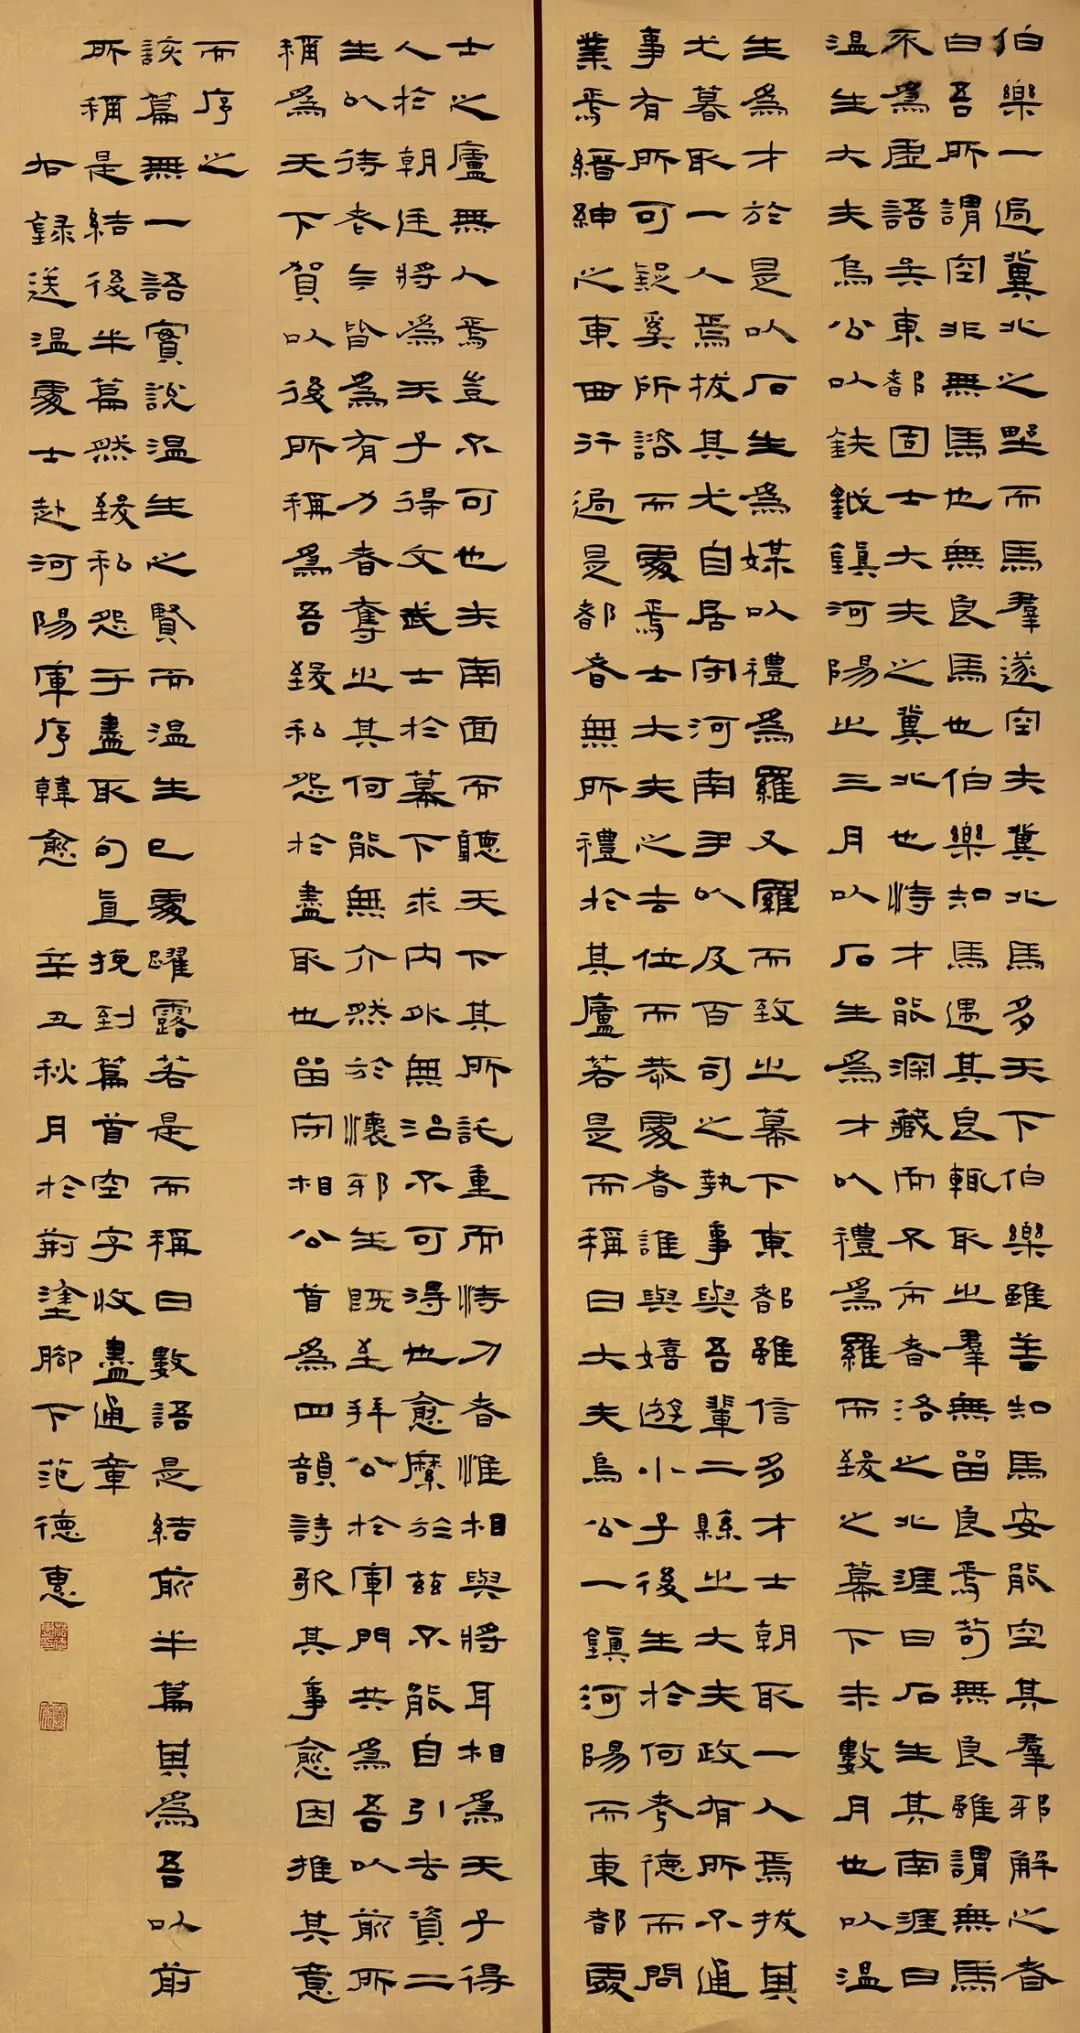 伯樂一過冀北之野而馬羣遂空夫冀北馬多天下伯樂雖善知馬安能空其羣邪解之者
曰吾所謂空非無馬也無良馬也伯樂知馬遇其良輒取之羣無留良焉苟無良雖謂無馬
不為虛語矣東都固士大夫之冀北也恃才能深藏而不市者洛之北涯曰石生其南涯曰
溫生大夫烏公以鈇鉞鎮河陽之三月以石生為才以禮為羅而致之幕下未數月也以溫
生為才於是以石生為媒以禮為羅又羅而致之幕下東都雖信多才士朝取一人焉拔其
尤暮取一人焉拔其尤自居守河南尹以及百司之執事與吾輩二縣之大夫政有所不通
事有所可疑奚所諮而處焉士大夫之去位而巷處者誰與嬉遊小子後生於何考德而問
業焉縉紳之東西行過是都者無所禮於其廬若是而稱曰大夫烏公一鎮河陽而東都處
士之廬無人焉豈不可也夫南面而聽天下其所託重而恃力者惟相與將耳相為天子得
人於朝廷將為天子得文武士於幕下求內外無治不可得也愈縻於茲不能自引去資二
生以待老今皆為有力者奪之其何能無介然於懷邪生既至拜公於軍門其為吾以前所
稱為天下賀以後所稱為吾致私怨於盡取也留守相公首為四韻詩歌其事愈因推其意
而序之
該篇無一語實說溫生之賢而溫生已處躍露若是而稱曰數語是結前半篇其為吾以前
所稱是結後半篇然致私怨于盡取句直挽到篇首空字收盡通章
右錄送溫處士赴河陽軍序韓愈 辛丑秋月於荊塗腳下范德惠